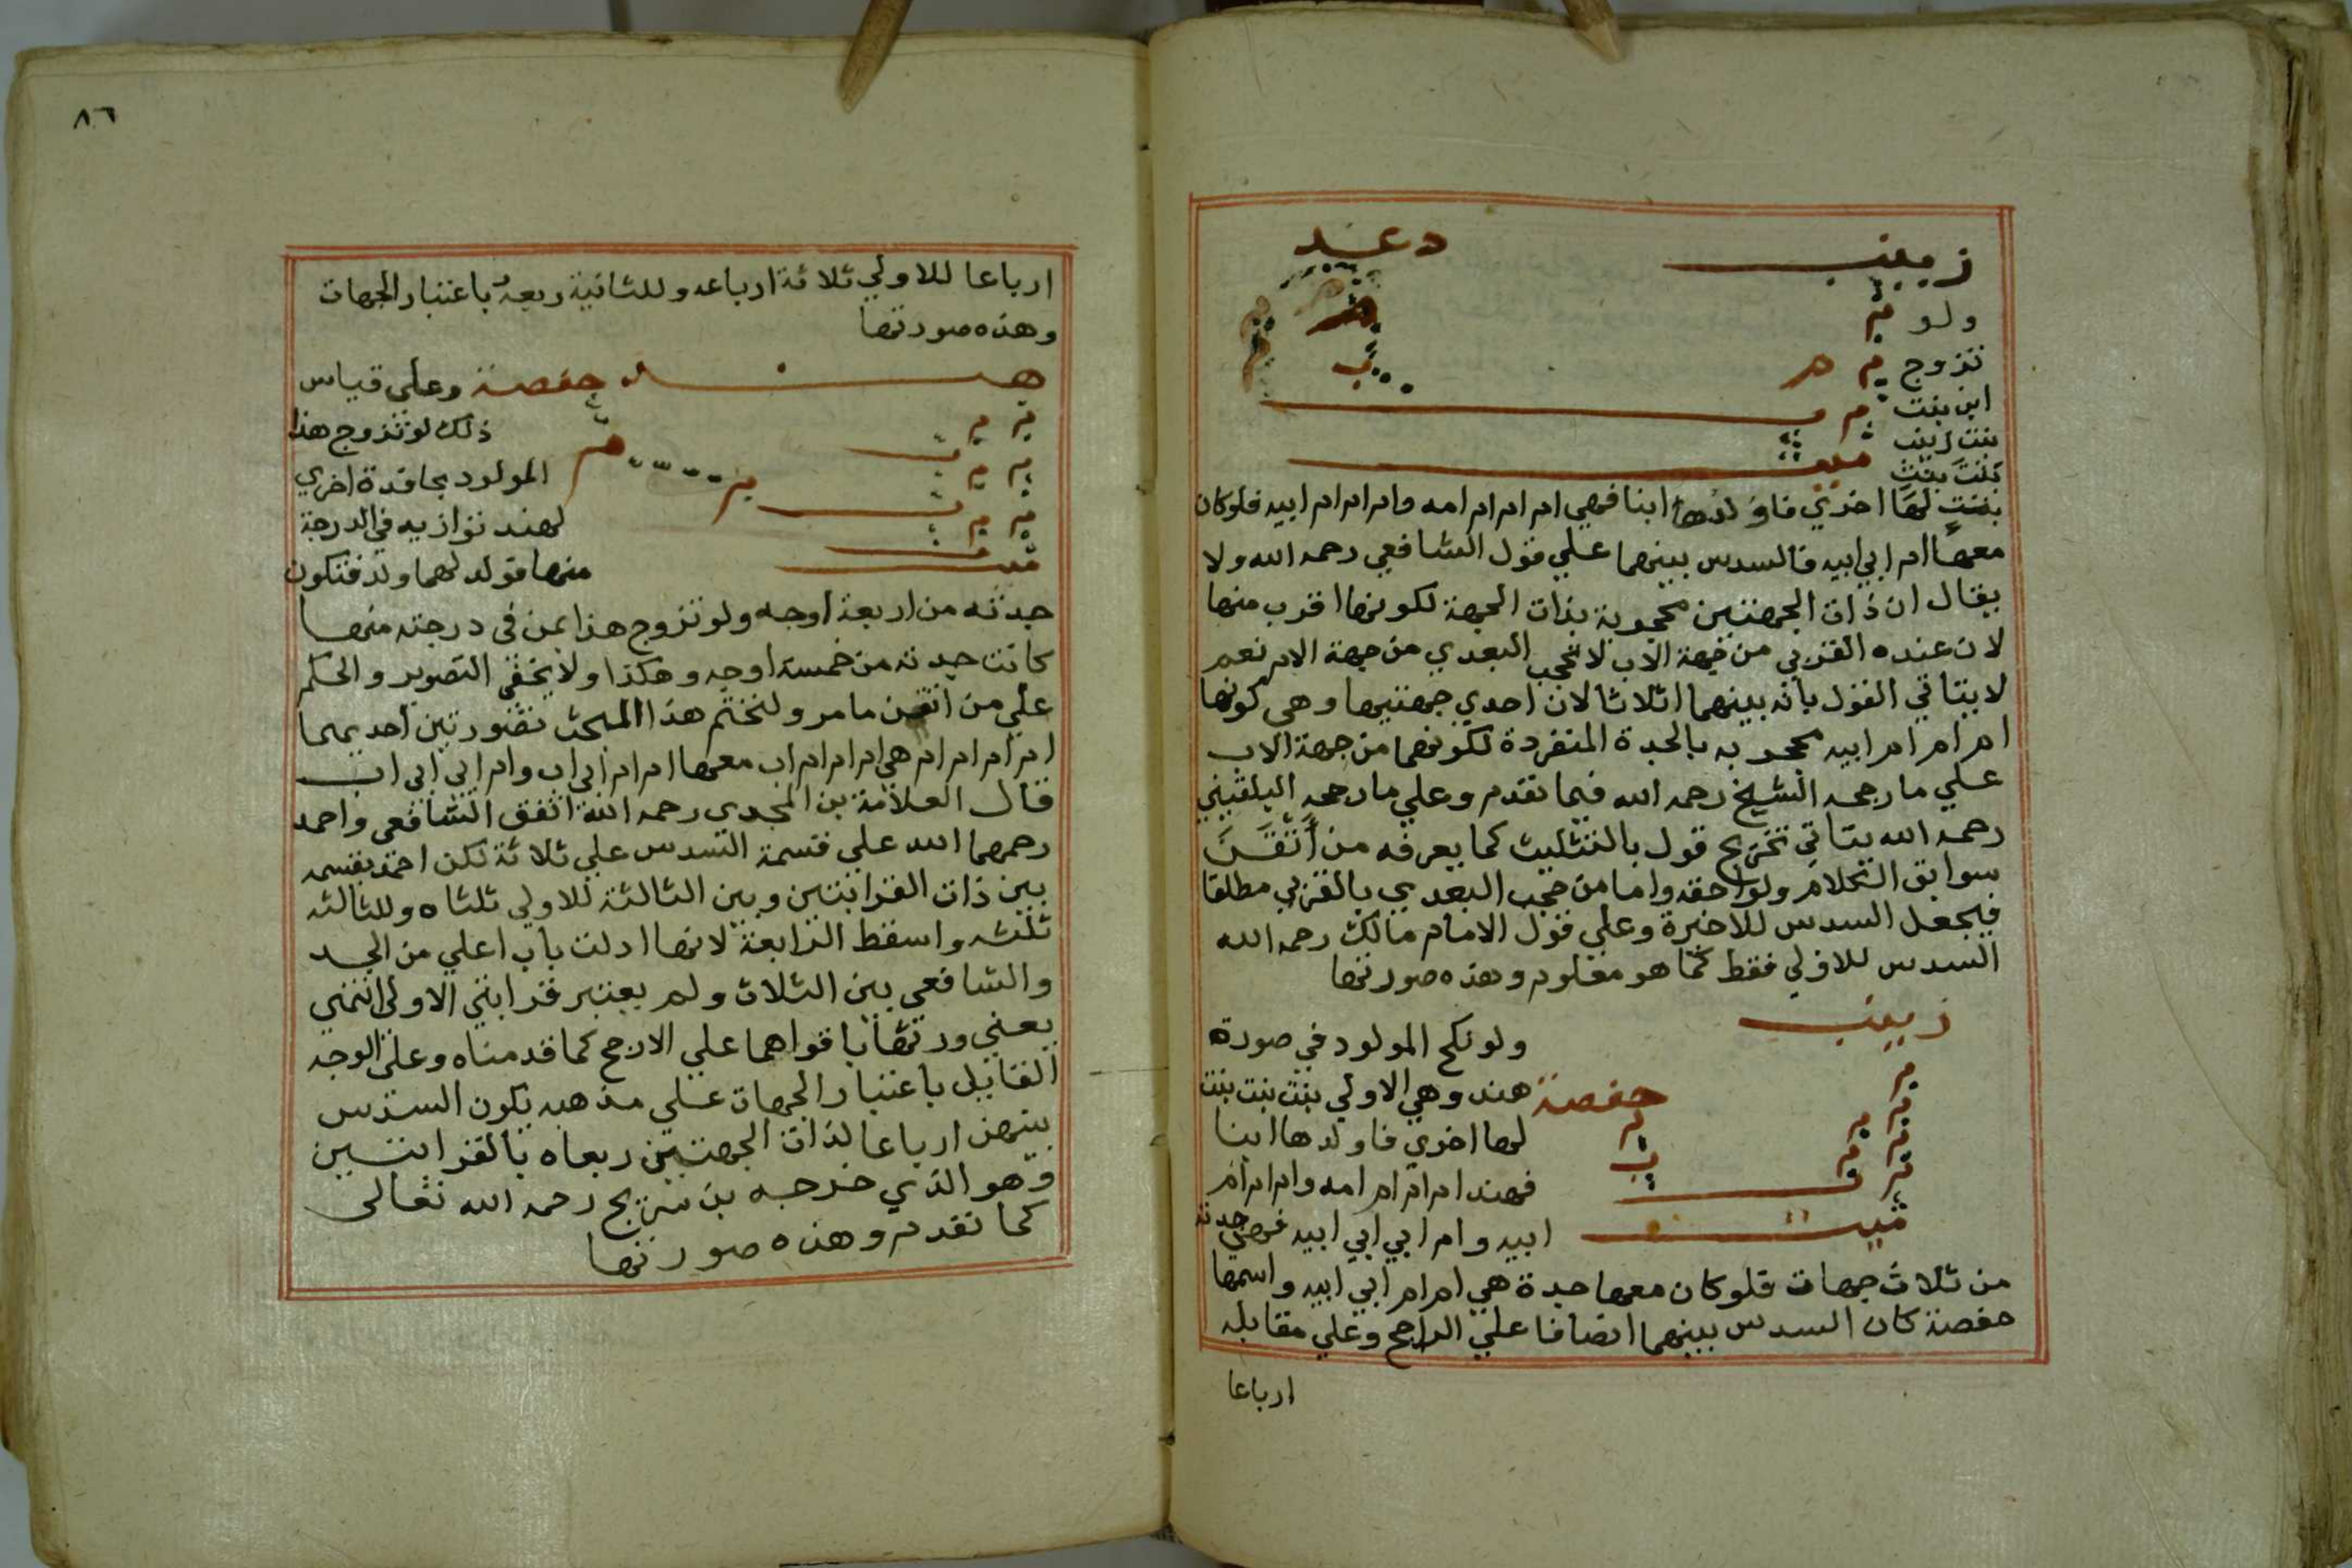 زينب دعد
ولو م
تزوج م هر
ابن بنت م
بنت زينب
كلنت بنت ميت
بنت لها اخري فاولدها ابنا فهي ام ام ام ام امه وام ام ام ام ابيه فلوكان
معها ام ابي ابيه فالسدس بينهما علي قول الشافعي رحمه الله ولا
يقال ان ذات الجهتين محجوبة بذات الجهة لكونها اقرب منها
لان عنده القربي من جهة الاب لا تحجب البعدي من جهة الام نعم
لا يتاتي القول بانه بينهما اثلاثا لان احدي جهتيها وهي كونها
ام ام ام ام ابيه محجوبه بالجدة المنفردة لكونهما من جهة الاب
علي ما رجحه الشيخ رحمه الله فيما تقدم وعلي ما رجحه البلقيني
رحمه الله يتاتي تخريج قول بالتثليث كما يعرفه من أتقن
سوابق الكلام ولواحقه واما من حجب البعدي بالقربي مطلقا
فيجعل السدس للاخيرة وعلي قول الامام مالك رحمه الله
السدس للاولي فقط كما هو معلوم وهذه صورتها
زينب
ولو نكح المولود في صورة
حفصة هند وهي الاولي بنت بنت بنت
لها اخري فاولدها ابنا
فهند ام ام ام امه وام ام ام
ميت ابيه وام ابي ابي ابيه فهي جدته
من ثلاث جهات فلوكان معها جدة هي ام ام ابي ابيه واسمها
حفصة كان السدس بينهما انصافا علي الراجح وعلي مقابله
ارباعا
٨٦
ارباعا للاولي ثلاثة ارباعه وللثانية ربعه باعتبار الجهات
وهذه صورتها
هند حفصة وعلي قياس
ذلك لو تزوج هذا
المولود بحافدة اخري
لهند توازيه في الدرجة
ميت منها فولد لهما ولد فتكون
جدته من اربعة اوجه ولو تزوج هذا بمن في درجته منها
كانت جدته من خمسة اوجه وهكذا ولا يخفي التصوير والحكم
علي من اتقن ما مر ولنختم هذا المبحث بصورتين احديهما
ام ام ام ام ام هي ام ام ام ام اب معها ام ام ام ابي اب وام ابي ابي اب
قال العلامة بن المجدي رحمه الله اتفق الشافعي واحمد
رحمهما الله علي قسمة السدس علي ثلاثة لكن احمد يقسمه
بين ذات القرابتين وبين الثالثة للاولي ثلثاه وللثالثه
ثلثه واسقط الرابعة لانها ادلت باب اعلي من الجد
والشافعي بين الثلاث ولم يعتبر قرابتي الاولي انتهي
يعني ورثها باقواهما علي الارجح كما قدمناه وعلي الوجه
القايل باعتبار الجهات علي مذهبه يكون السدس
بينهن ارباعا لذات الجهتين ربعاه بالقرابتين
وهو الذي خرجه بن سريج رحمه الله تعالي
كما تقدم وهذه صورتها